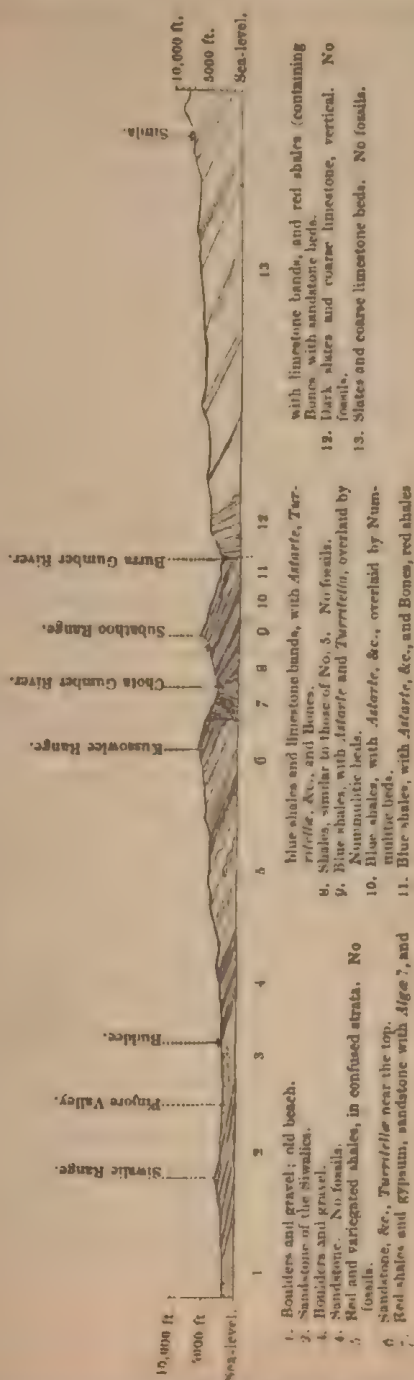 10,000 ft.
5000 ft
Sea-level.
Siwalic Range.
Pinjore Valley.
Buddee.
Kussowlee Range.
Chota Gumber River.
Subathoo Range.
Burra Gumber River.
Simla.
10,000 ft.
5000 ft.
Sea-level.
1 2 3 4 5 6 7 8 9 10 11 12 13
1. Boulders and gravel; old beach.
2. Sandstone of the Siwalics.
3. Boulders and gravel.
4. Sandstone. No fossils.
5 Red and variegated shales, in confused strata. No
fossils.
6 Sandstone, &c., Turritellæ near the top.
Red shales and gypsum, sandstone with Algæ?, and
blue shales and limestone bands, with Astarte, Tur-
ritellæ, &c., and Bones.
8. Shales, similar to those of No. 5. No fossils.
9. Blue shales, with Astarte and Turritella, overlaid by
Nummulitic beds.
10. Blue shales, with Astarte, &c., overlaid by Num-
mulitic beds.
11. Blue shales, with Astarte, &c., and Bones, red shales
with limestone bands, and red shales (containing
Bones with sandstone beds.
12. Dark slates and coarse limestone, vertical. No
fossils.
13. Slates and coarse limestone beds. No fossils.